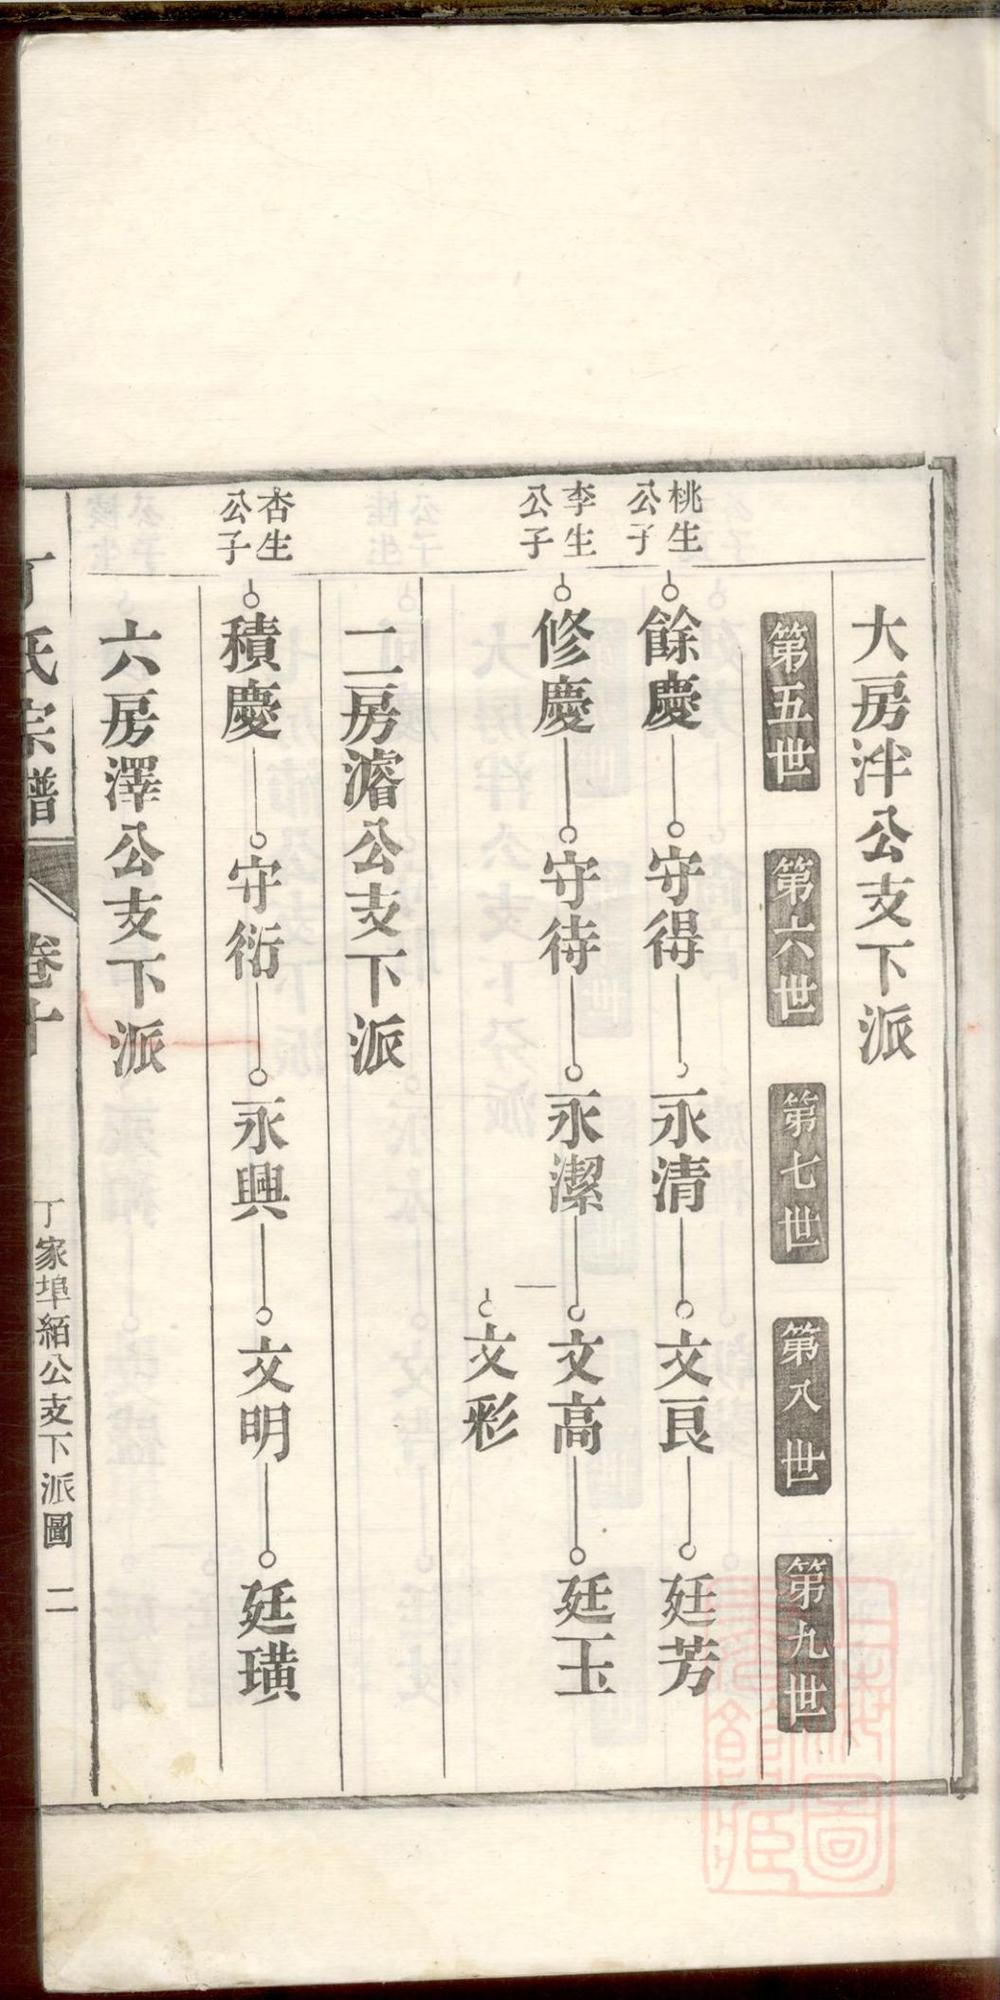 大房泮公支下派
第五世
第六世
第七世
第八世
第九世
桃生公子
餘慶
守得
永清
文良
廷芳
李生公子
修慶
守待
永潔
文高
廷玉
文彩
二房濬公支下派
杏生公子
積慶
守衍
永興
文明
廷璜
六房澤公支下派
丁氏宗譜
卷十
丁家埠紹公支下派圖
二